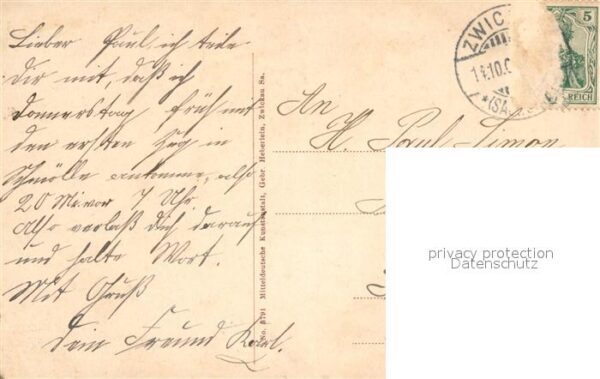 Lieber Paul, ich teile
Dir mit, daß ich
Donnerstag früh mit
den ersten Zug in
Schmölln ankomme, also
20 Mi. vor 7 Uhr
Also verlaß Dich darauf
und halte Wort.
Mit Gruß
Dein Freund Karl.
No. 5791 Mitteldeutsche Kunstanstalt, Gebr. Heberlein, Zwickau Sa.
ZWIC
5
REICH
An
H. Paul Simon
privacy protection
Datenschutz